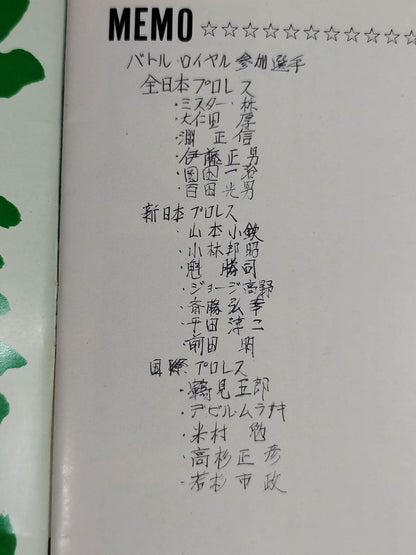 MEMO ☆☆☆☆☆☆☆☆☆☆☆☆☆
バトル・ロイヤル参加選手
全日本プロレス
・ミスター・林
・大仁田 厚
・渕 正信
・伊藤正男
・園田一治
・百田光男
新日本プロレス
・山本小鉄
・小林邦昭
・魁 勝司
・ジョージ高野
・斎藤弘幸
・平田淳二
・前田 明
国際プロレス
・鶴見五郎
・デビル・ムラサキ
・米村 勉
・高杉正彦
・若杉市政